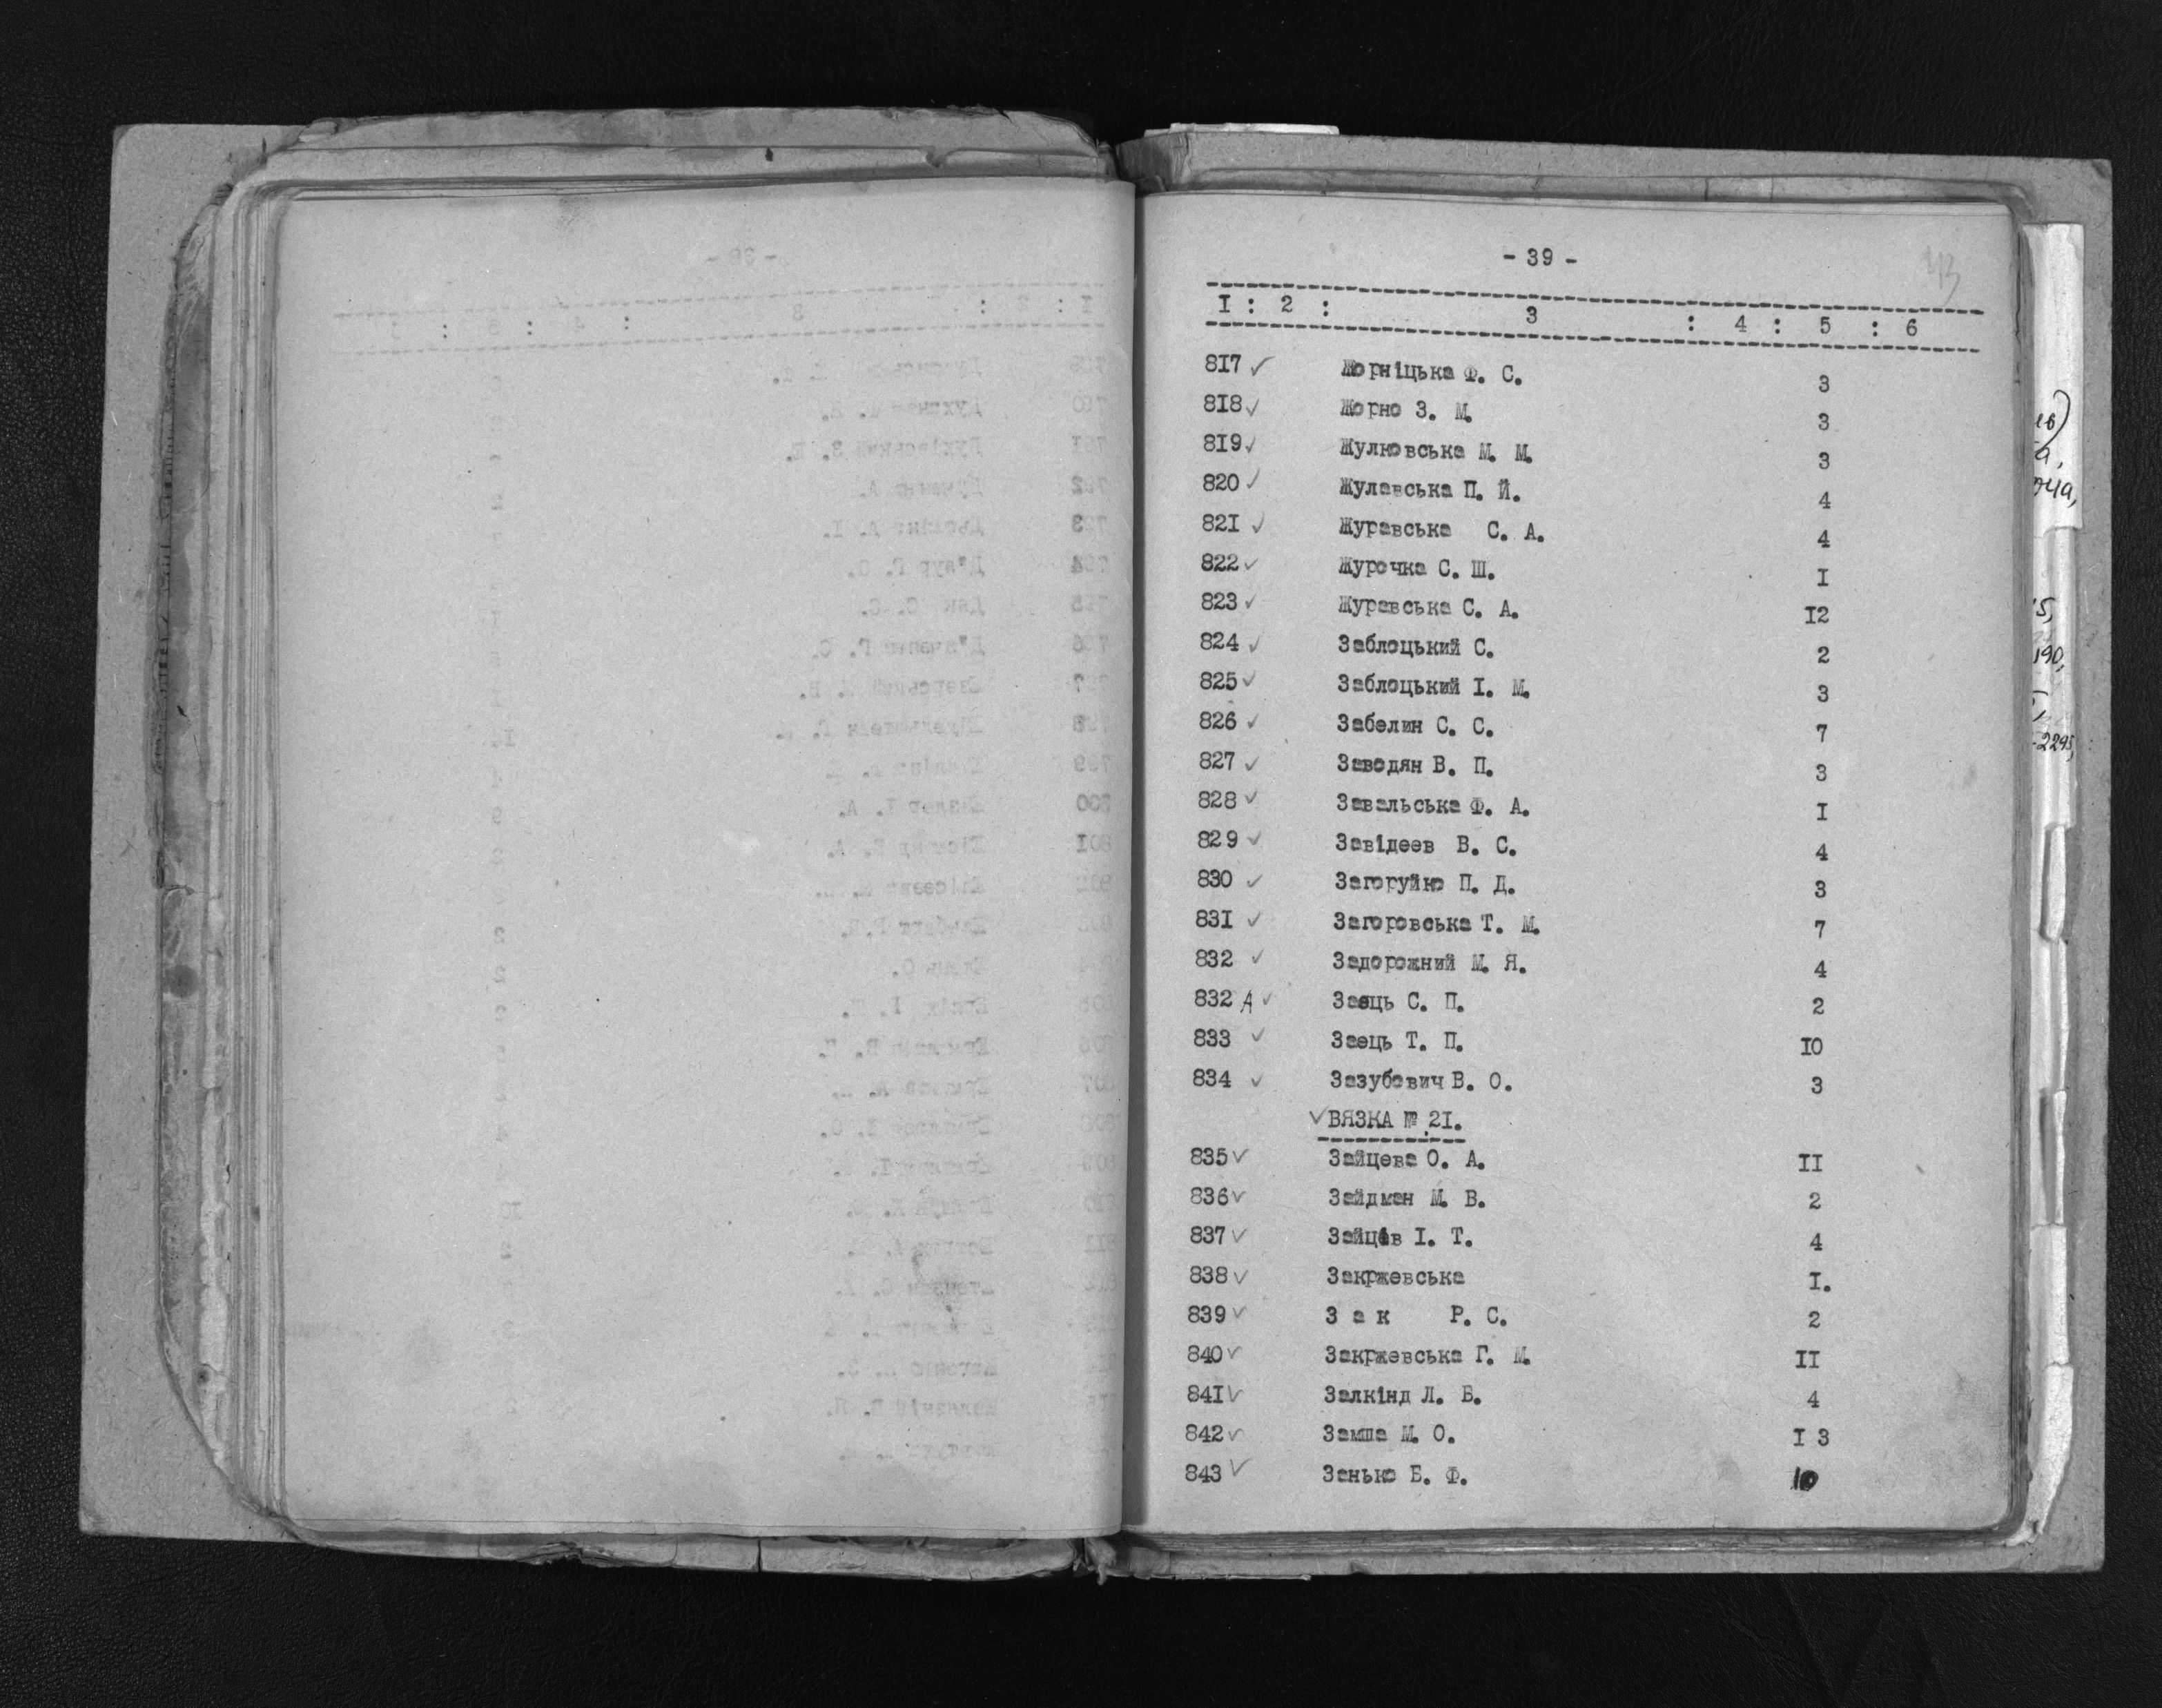 - 39 -
43
I : 2 : 3 : 4 : 5 : 6
817 ✓ Жорніцька Ф. С. 3
818 ✓ Жорно З. М. 3
819 ✓ Жулковська М. М. 3
820 ✓ Жулавська П. Й. 4
821 ✓ Журавська С. А. 4
822 ✓ Журочка С. Ш. I
823 ✓ Журавська С. А. I2
824 ✓ Заблоцький С. 2
825 ✓ Заблоцький І. М. 3
826 ✓ Забелин С. С. 7
827 ✓ Заводян В. П. 3
828 ✓ Завальська Ф. А. I
829 ✓ Завідеев В. С. 4
830 ✓ Загоруйко П. Д. 3
831 ✓ Загоровська Т. М. 7
832 ✓ Задорожний М. Я. 4
832 А ✓ Заець С. П. 2
833 ✓ Заець Т. П. IO
834 ✓ Зазубович В. О. 3
✓ ВЯЗКА № 2I.
835 ✓ Зайцева О. А. II
836 ✓ Зайдман М. В. 2
837 ✓ Зайцев І. Т. 4
838 ✓ Закржевська I.
839 ✓ З а к Р. С. 2
840 ✓ Закржевська Г. М. II
841 ✓ Залкінд Л. Б. 4
842 ✓ Замша М. О. I 3
843 ✓ Занько Б. Ф. 10